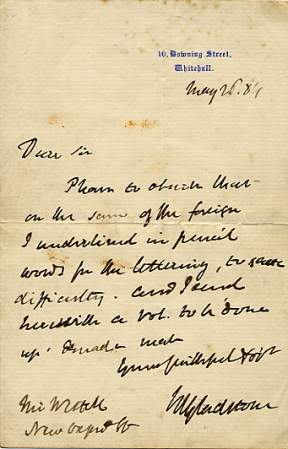 10, Downing Street,
Whitehall.
May 26. 84
Dear Sir
Please to observe that
on the some of the foreign
I underlined in pencil
words for the lettering, to save
difficulty. And I send
herewith a vol. to be done
up & made neat
Your faithful
WEGladstone
New Oxford St